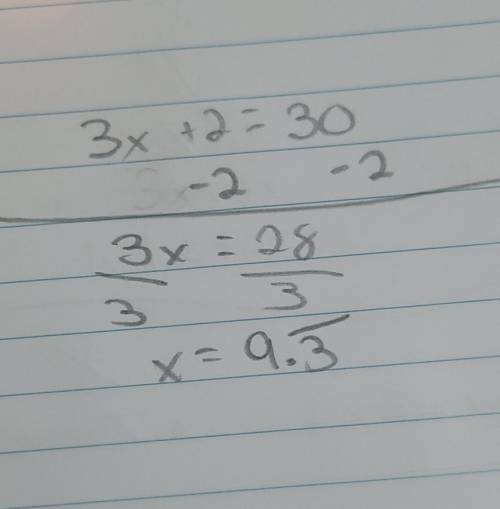 3x +2 = 30
-2 -2
3x = 28
3 3
x = 9.3̅